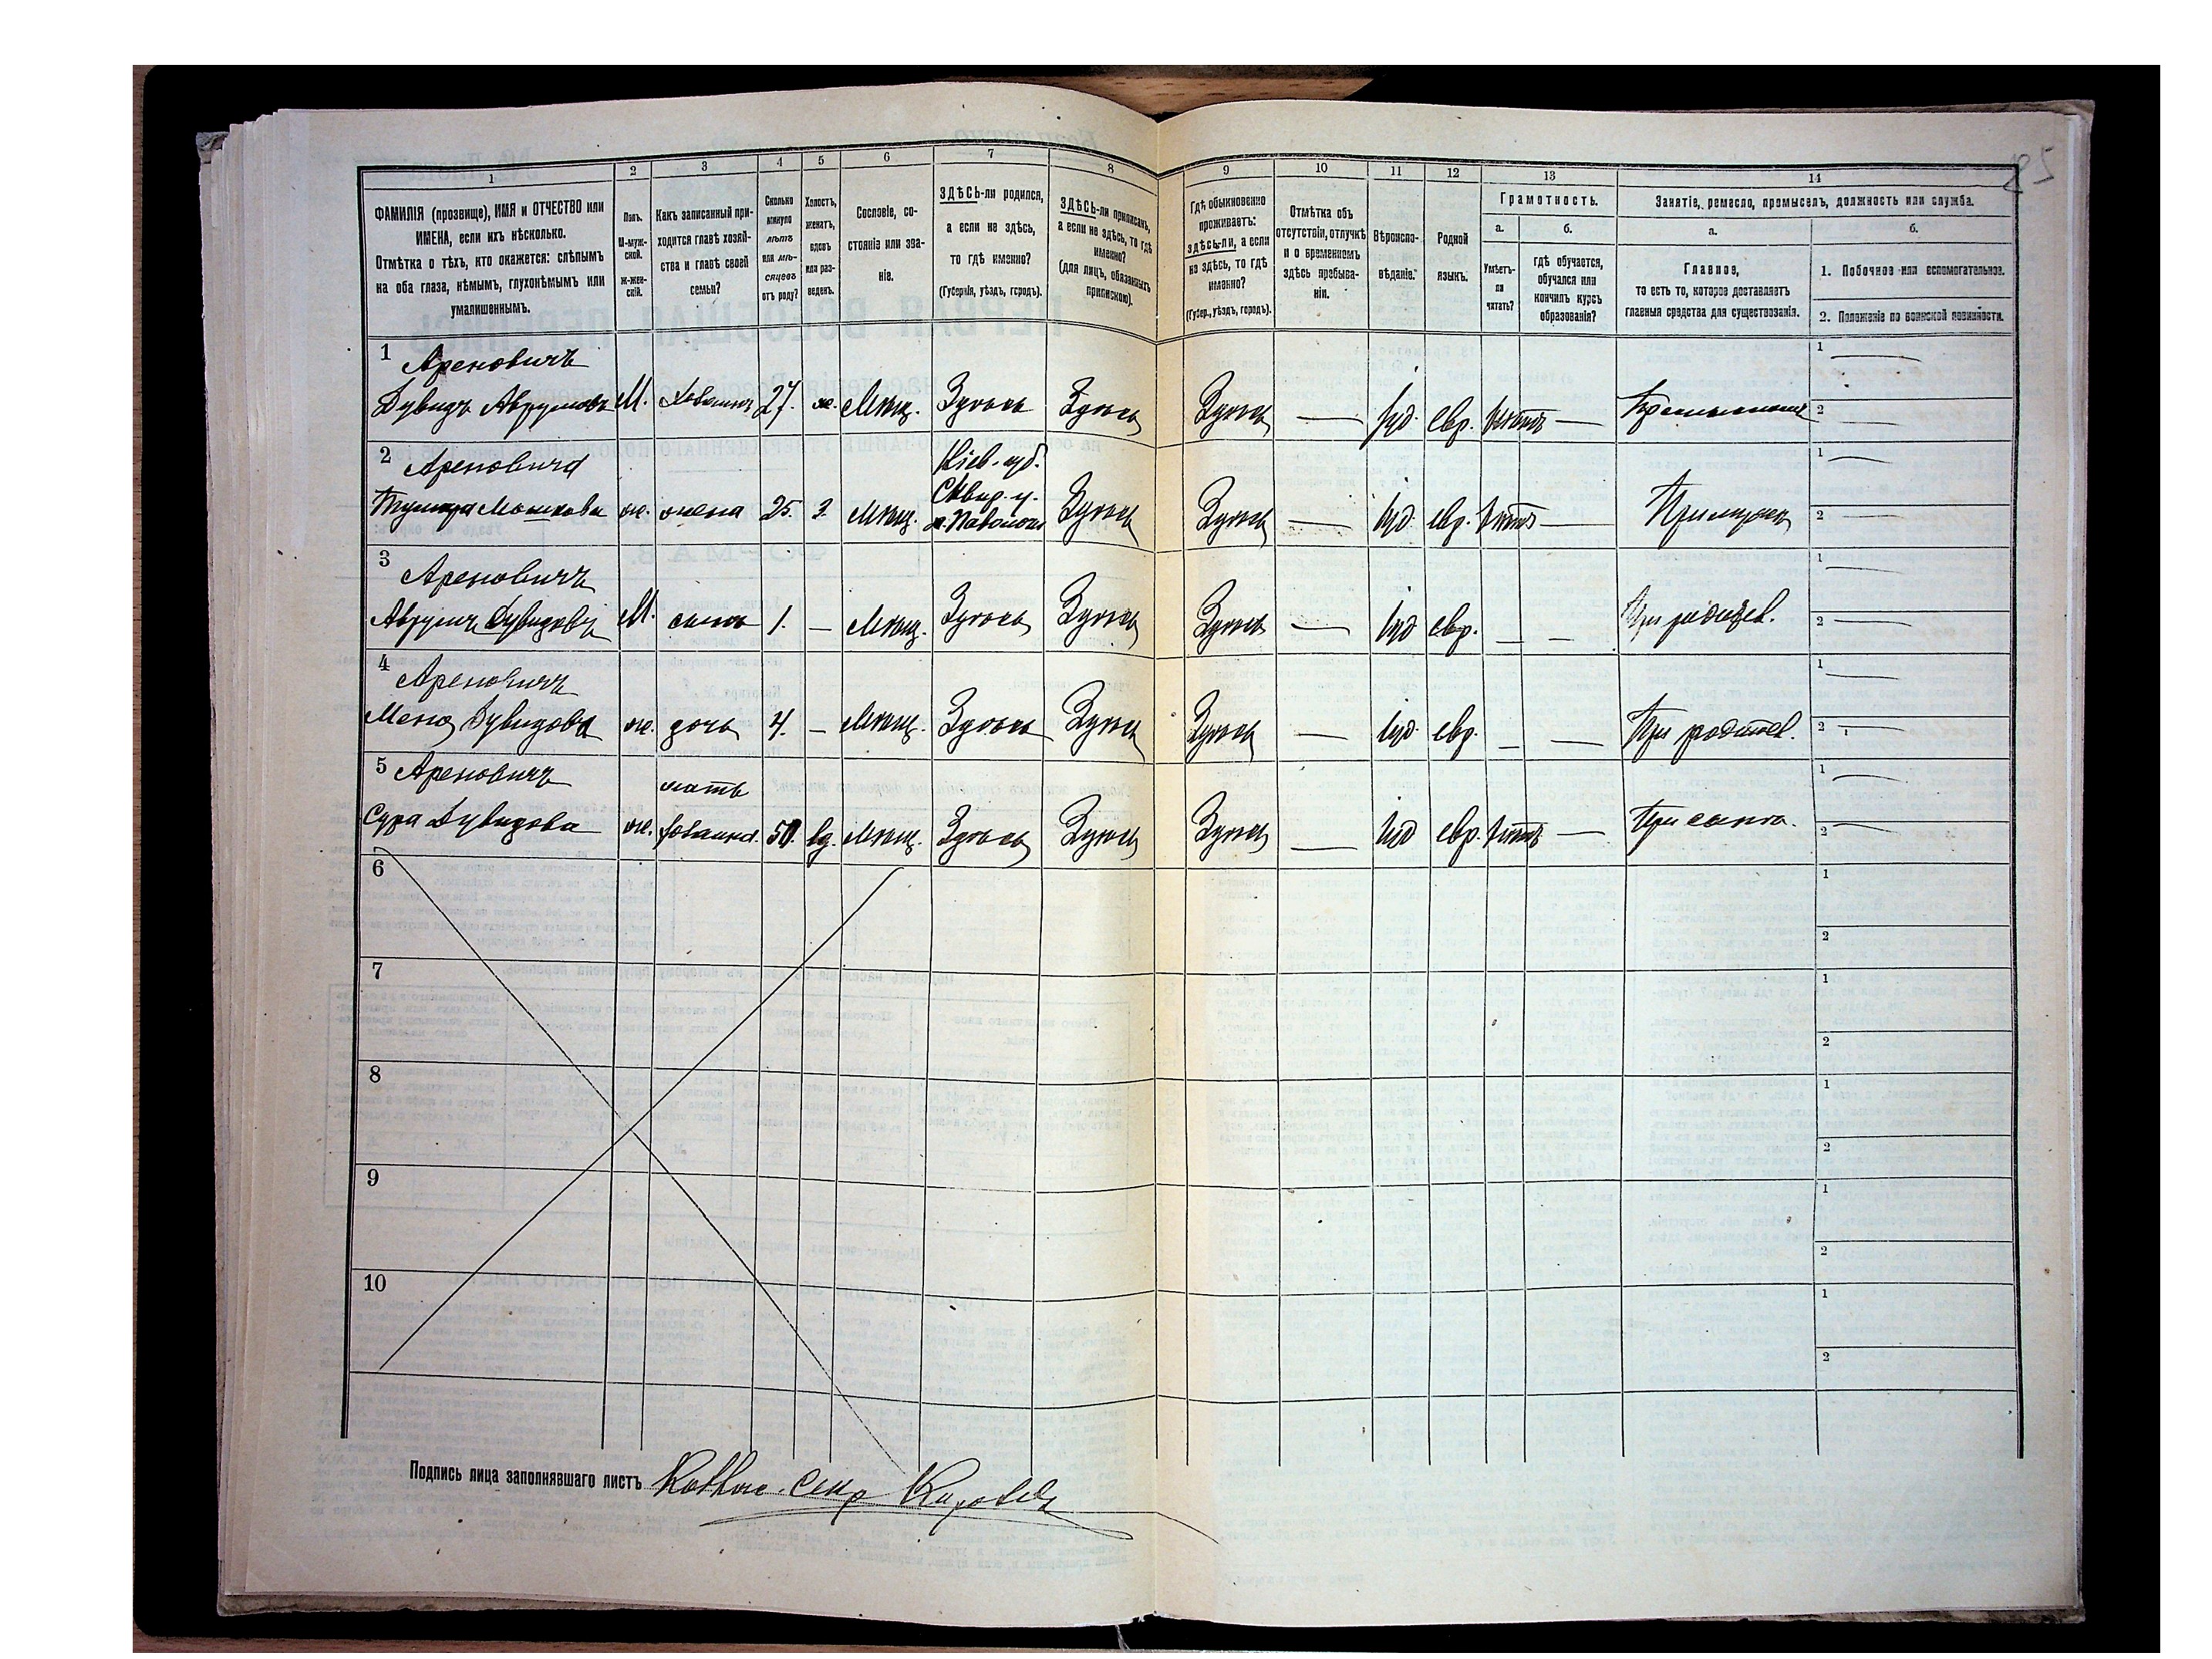 85
1
ФАМИЛІЯ (прозвище), ИМЯ и ОТЧЕСТВО или ИМЕНА, если ихъ нѣсколько.
Отмѣтка о тѣхъ, кто окажется: слѣпымъ на оба глаза, нѣмымъ, глухонѣмымъ или умалишеннымъ.
2
Полъ.
М-мужской.
Ж-женскій.
3
Какъ записанный приходится главѣ хозяйства и главѣ своей семьи?
4
Сколько минуло лѣтъ или мѣсяцевъ отъ роду?
5
Холостъ, женатъ, вдовъ или разведенъ.
6
Сословіе, состояніе или званіе.
7
ЗДѢСЬ-ли родился, а если не здѣсь, то гдѣ именно?
(Губернія, уѣздъ, городъ).
8
ЗДѢСЬ-ли приписанъ, а если не здѣсь, то гдѣ именно?
(для лицъ, обязанныхъ припискою).
9
Гдѣ обыкновенно проживаетъ: здѣсь-ли, а если не здѣсь, то гдѣ именно?
(Губер., уѣздъ, городъ).
10
Отмѣтка объ отсутствіи, отлучкѣ и о временномъ здѣсь пребываніи.
11
Вѣроисповѣданіе.
12
Родной языкъ.
13
Грамотность.
а.
Умѣетъ-ли читать?
б.
гдѣ обучается, обучался или кончилъ курсъ образованія?
14
Занятіе, ремесло, промыселъ, должность или служба.
а.
Главное,
то есть то, которое доставляетъ главныя средства для существованія.
б.
1. Побочное или вспомогательное.
2. Положеніе по воинской повинности.
1 Ареновичъ
Дувидъ Аврумовъ М. 27. ж. Мѣщ. Здѣсь Здѣсь Здѣсь — Іуд. евр. —
1 —
2 —
2 Ареновичъ
Мошкова ж. жена 25. З. Мѣщ. Кіев. губ. Сквир. у. м. Паволочь Здѣсь Здѣсь — Іуд. евр. —
1 —
2 —
3 Ареновичъ
Аврумъ Дувидовъ М. сынъ 1. — Мѣщ. Здѣсь Здѣсь Здѣсь — Іуд евр. — — При родител.
1 —
2 —
4 Ареновичъ
Меня Дувидова ж. дочь 4. — Мѣщ. Здѣсь Здѣсь Здѣсь — Іуд. евр. — — При родител.
1 —
2 —
5 Ареновичъ
Сура Дувидова ж. мать хозяина. 50. вд. Мѣщ. Здѣсь Здѣсь Здѣсь — Іуд евр. — При сынѣ.
1 —
2 —
6
1
2
7
1
2
8
1
2
9
1
2
10
1
2
Подпись лица заполнявшаго листъ